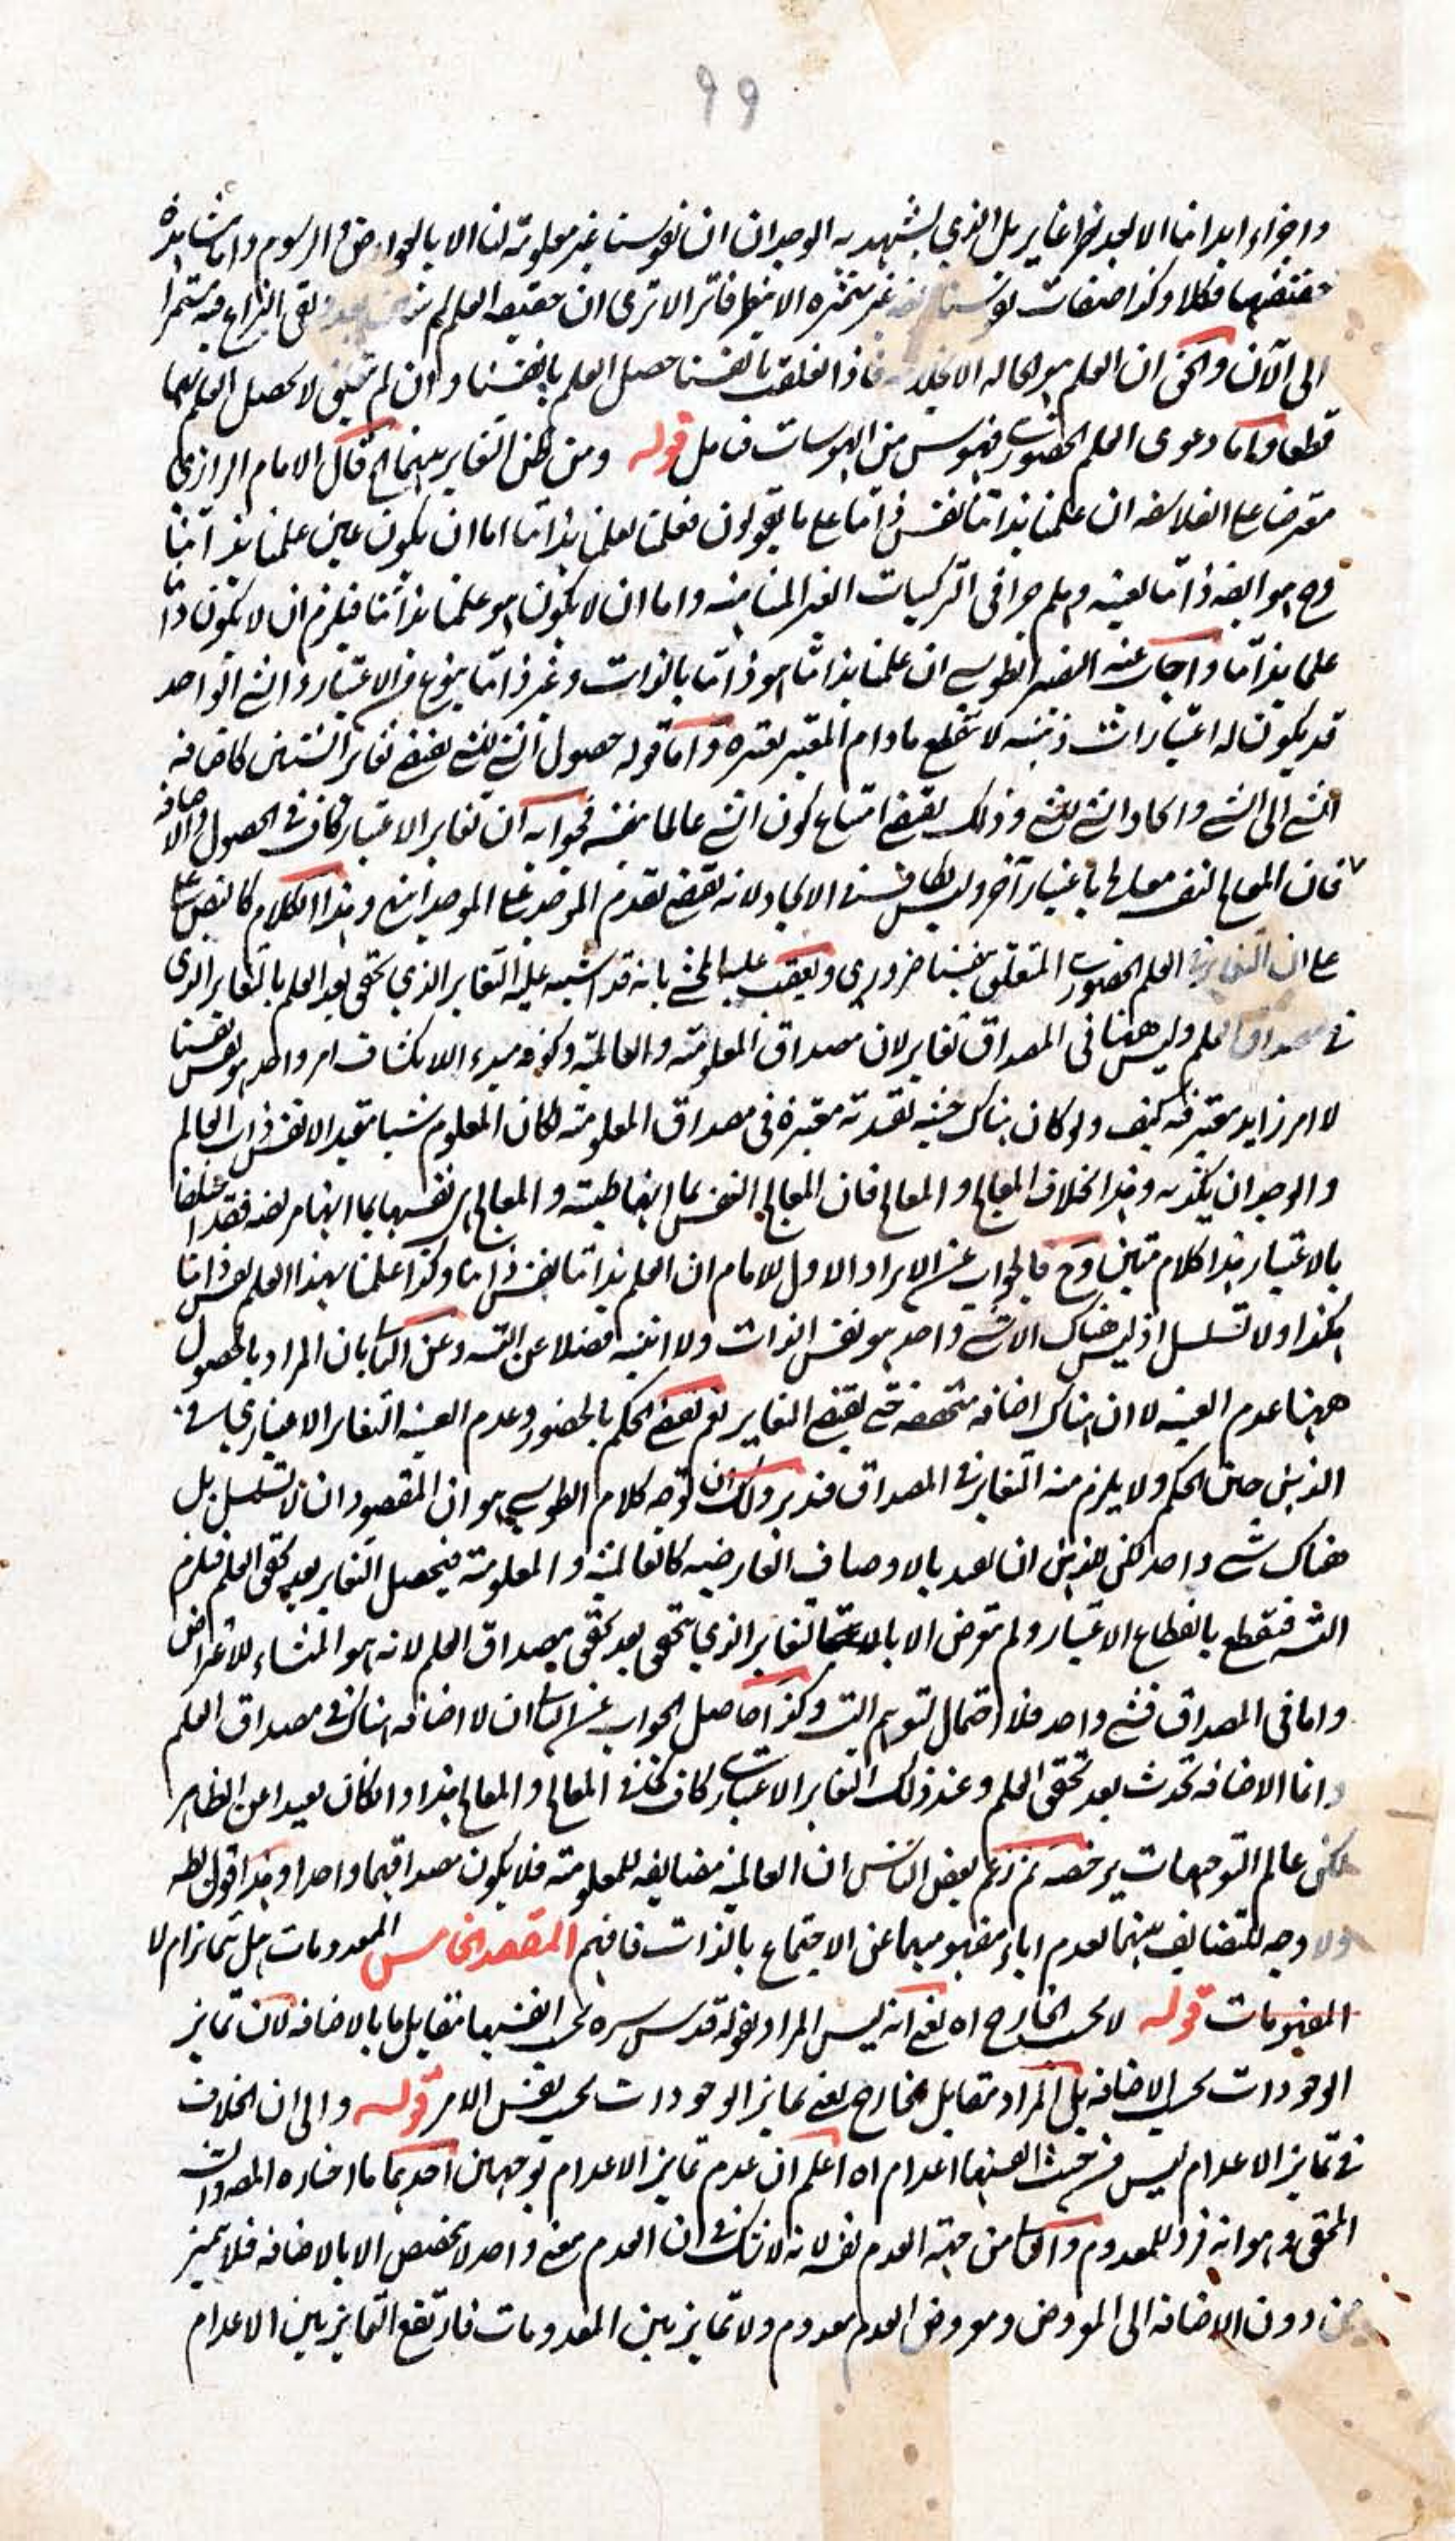 ٩٩
واجزاء ابداننا الا لبعد نظر غاير بل الذي يشهد به الوجدان ان نفوسنا غير معلومة لنا الا بالعوارض والرسوم واما مشاهدة
حقيقتها فكلا وكذا صفات نفوسنا غير متميزه الا بنظر فاتر الا ترى ان حقيقه العلم لم بقى النزاع فيه مستمرا
الى الآن والحق ان العلم هو الحاله الا فاذا تعلقت بانفسنا حصل العلم بانفسنا وان لم تتعلق لا يحصل العلم بها
قطعا واما دعوى العلم الحضوري فهوس من الهوسات فتامل قوله ومن ظن التغاير بينهما الخ قال الامام الرازي
معترضا على الفلاسفه ان علمنا بذاتنا نفس ذاتنا على ما يقولون فعلمنا بعلمنا بذاتنا اما ان يكون عين علمنا بذاتنا
وح هو ايضه ذاتنا بعينه وهلم جرا في التركيبات الغير المتناهيه واما ان لا يكون هو علمنا بذاتنا فيلزم ان لا يكون ذاتنا
علما بذاتنا واجاب عنه النصير الطوسي ان علمنا بذاتنا هو ذاتنا بالذات وغير ذاتنا بنوع من الاعتبار والشي الواحد
قد يكون له اعتبارات ذهنيه لا تنقطع مادام المعتبر يعتبره واما قوله حصول الشي للشي يقتضي تغاير الشيئين كاضافه
الشي الى الشي وايجاد الشي للشي وذلك يقتضي امتناع كون الشي عالما بنفسه فجوابه ان تغاير الاعتبار كاف في الحصول والاضافه
فان المعالج لنفسه معالج باعتبار آخر وليس بكاف في الايجاد لانه يقتضي تقدم الموجد على الموجد انتهى وهذا الكلام كالنص على
على ان التغاير في العلم الحضوري المتعلق بنفسنا ضروري وتعقب عليه المحشي بانه قد اشتبه عليه التغاير الذي يتحقق بعد العلم بالتغاير الذي
في مصداق العلم وليس ههنا في المصداق تغاير لان مصداق المعلوميه والعالميه وكونه مبدء الانكشاف امر واحد هو نفسنا
لا امر زايد معتبر فيه كيف ولو كان هناك حيثيه تقييديه معتبرة في مصداق المعلوميه لكان المعلوم شيئا مقيدا لا نفس ذات العالم
والوجدان يكذبه وهذا بخلاف المعالج والمعالج فان المعالج النفس بما انها طبيبه والمعالج هي نفسها بما انها مريضه فقد اختلفا
بالاعتبار هذا كلام متين وح فالجواب عن الايراد الاول للامام ان العلم بذاتنا نفس ذاتنا وكذا علمنا بهذا العلم نفس ذاتنا
هكذا ولا تسلسل اذ ليس هناك الا شي واحد هو نفس الذات ولا اثنينيه فضلا عن التسـ وعن الثاني بان المراد بالحصول
ههنا عدم الغيبه لا ان هناك اضافه متحققه حتى يقتضي التغاير نعم يقتضي الحكم بالحضور وعدم الغيبه التغاير الاعتباري في
الذهن حين الحكم ولا يلزم منه التغاير في المصداق فتدبر ولك ان توجه كلام الطوسي هو ان المقصود ان لا تسلسل بل
هناك شي واحد لكن للذهن ان يعبد بالاوصاف العارضيه كالعالميه والمعلوميه فيحصل التغاير بعد تحقق العلم فيلزم
التسـ فينقطع بانقطاع الاعتبار ولم تعرض الا بالتغاير الذي يتحقق بعد تحقق مصداق العلم لانه هو المنشاء للاعتراض
واما في المصداق فشي واحد فلا احتمال لتوهم التسـ وكذا حاصل الجواب عن الثاني ان لا اضافه هناك في مصداق العلم
وانما الاضافه تحدث بعد تحقق العلم وعند ذلك التغاير الاعتباري كاف كما في المعالج والمعالج هذا وان كان بعيدا عن الظاهر
لكن عالم التوجيهات يرخصه ثم زعم بعض الناس ان العالميه مضايفه للمعلوميه فلا يكون مصداقهما واحدا وهذا قول بط
ولا وجه للتضايف بينهما لعدم اباء مفهوميهما عن الاجتماع بالذات فافهم المقصد الخامس المعدومات هل تتمايز ام لا
المفهومات قوله لا بحسب الخارج اه يعني انه ليس المراد بقوله قدس سره بحسب انفسها مقابل ما بالاضافه لان تمايز
الوجودات بحسب الاضافه بل المراد مقابل الخارج يعني تمايز الوجودات بحسب نفس الامر قوله والى ان الخلاف
في تمايز الاعدام ليس من حيث انفسها اعدام اه اعلم ان عدم تمايز الاعدام توجهين احدهما ما اختاره المصـ
المحقق وهو انه فرد للمعدوم والثاني من جهة العدم نفسه لانه لا شك في ان العدم معنى واحد لا تخصص الا بالاضافه فلا تميز
من دون الاضافه الى المعروض ومعروض العدم معدوم ولا تمايز بين المعدومات فارتفع التمايز بين الاعدام